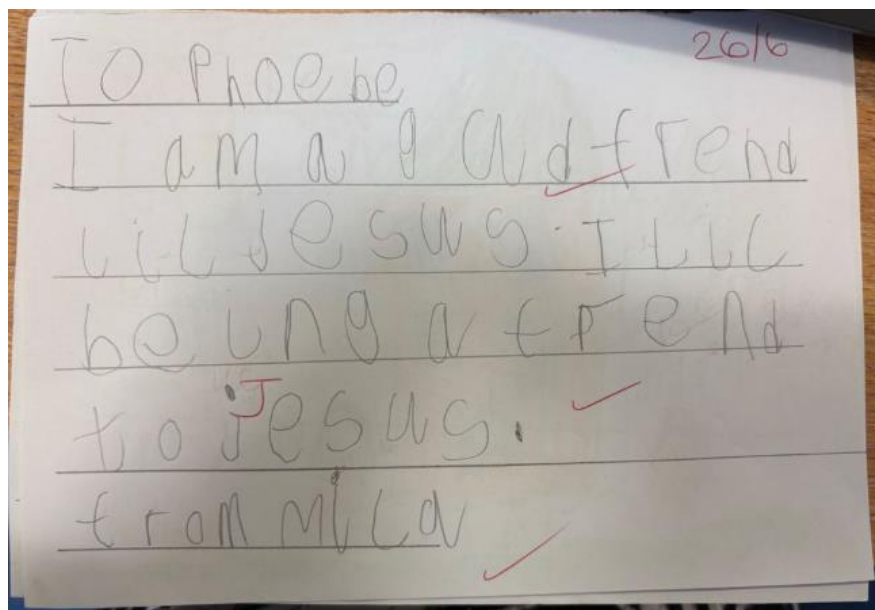 To Phoebe 26/6
I am a gad frend
lil Jesus. I lil
being a frend
to Jesus.
from Mila